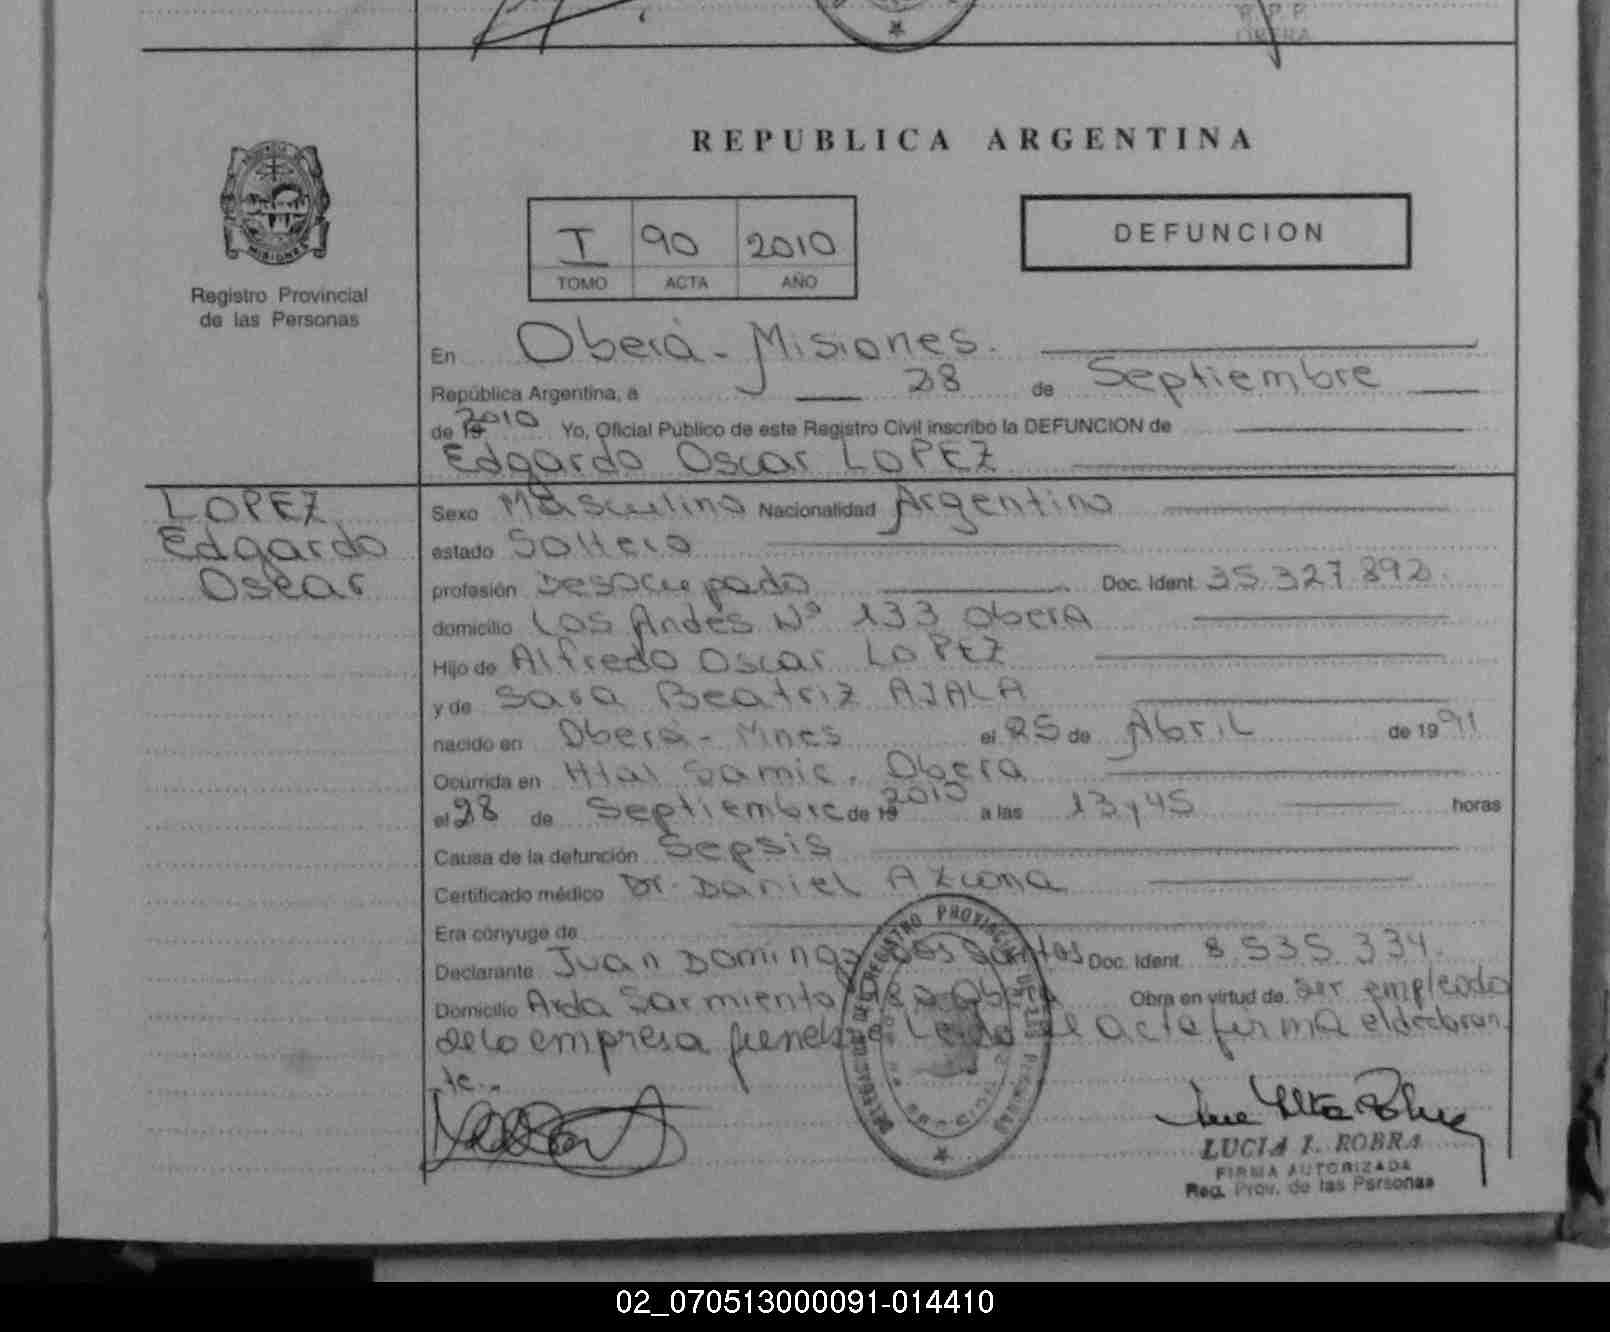 R. P. P.
OBERA
REPUBLICA ARGENTINA
I 90 2010
TOMO ACTA AÑO
DEFUNCION
MISIONES
Registro Provincial
de las Personas
En Oberá - Misiones.
República Argentina, a 28 de Septiembre
de 19 2010 Yo, Oficial Público de este Registro Civil inscribo la DEFUNCION de
Edgardo Oscar LOPEZ
LOPEZ
Edgardo
Oscar
Sexo Masculino Nacionalidad Argentino
estado Soltero
profesión Desocupado Doc. Ident. 35.327.892.
domicilio Los Andes Nº 133 Oberá
Hijo de Alfredo Oscar LOPEZ
y de Sara Beatriz AJALA
nacido en Oberá - Mnes el 25 de Abril de 1991
Ocurrida en Htal Samic. Oberá
el 28 de Septiembre de 19 2010 a las 13 y 45 horas
Causa de la defunción Sepsis
Certificado médico Dr. Daniel Azcona
Era cónyuge de
Declarante Juan Domingo Dos Santos Doc. Ident. 8.535.334.
Domicilio Avda Sarmiento Oberá Obra en virtud de ser empleado
de la empresa funebre Leida el acta firma el declaran
te.
LUCIA I. ROBRA
FIRMA AUTORIZADA
Reg. Prov. de las Personas
02_070513000091-014410